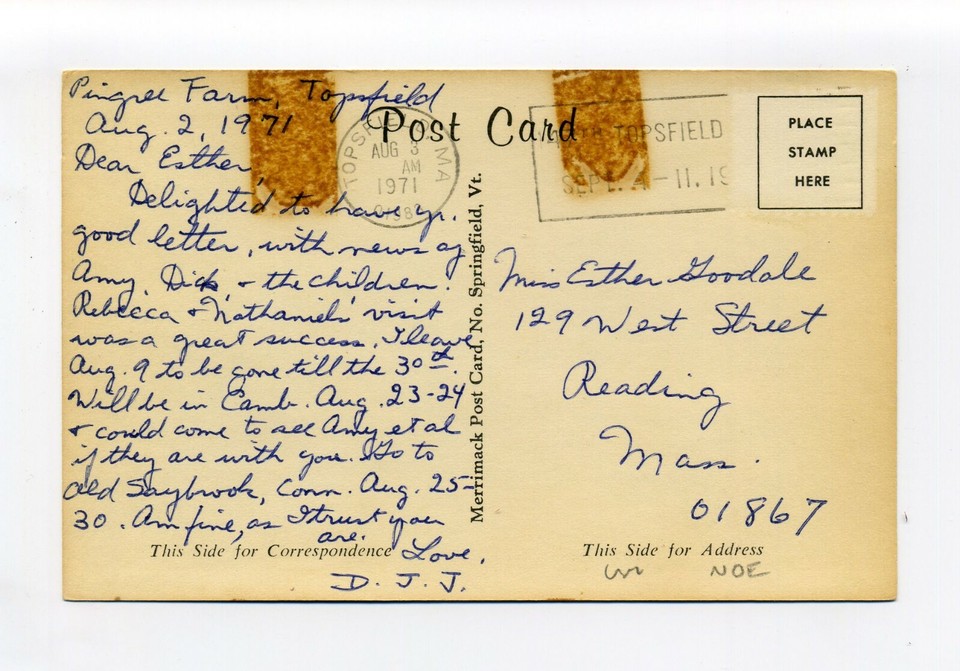 Pingree Farm, Topsfield
Aug. 2, 1971
Dear Esther,
Delighted to have yr.
good letter, with news of
Amy, Dick, + the children.
Rebecca + Nathaniel's visit
was a great success. I leave
Aug. 9 to be gone till the 30th.
Will be in Camb. Aug. 23-24
+ could come to see Amy et al
if they are with you. Go to
Old Saybrook, Conn. Aug. 25-
30. Am fine, as I trust you
are.
Love,
D. J. J.
This Side for Correspondence
Post Card
TOPSFIELD MA
AUG 3
AM
1971
01983
TOPSFIELD
SEPT. 4-11, 19
PLACE
STAMP
HERE
Merrimack Post Card, No. Springfield, Vt.
Miss Esther Goodale
129 West Street
Reading
Mass.
01867
This Side for Address
NOE